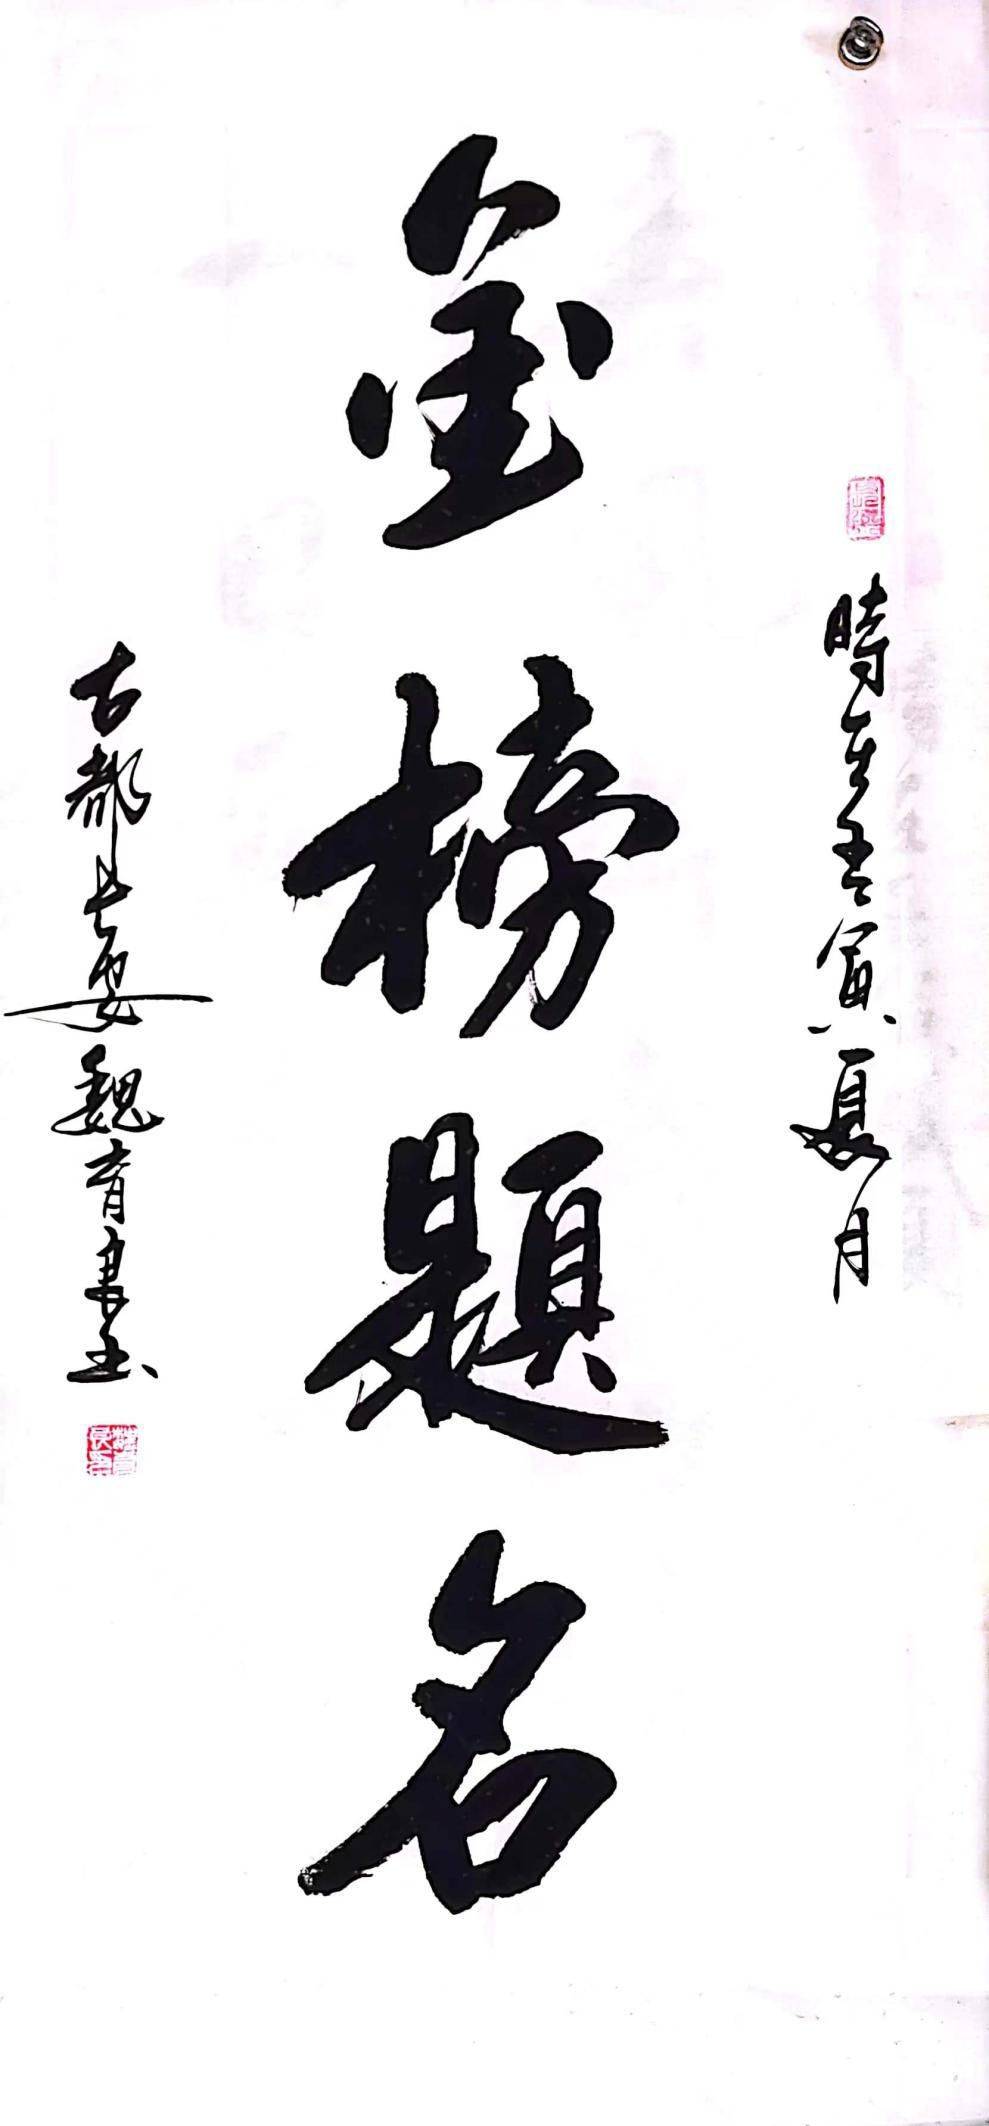 時在壬寅夏月
金榜題名
古都長安魏育良書